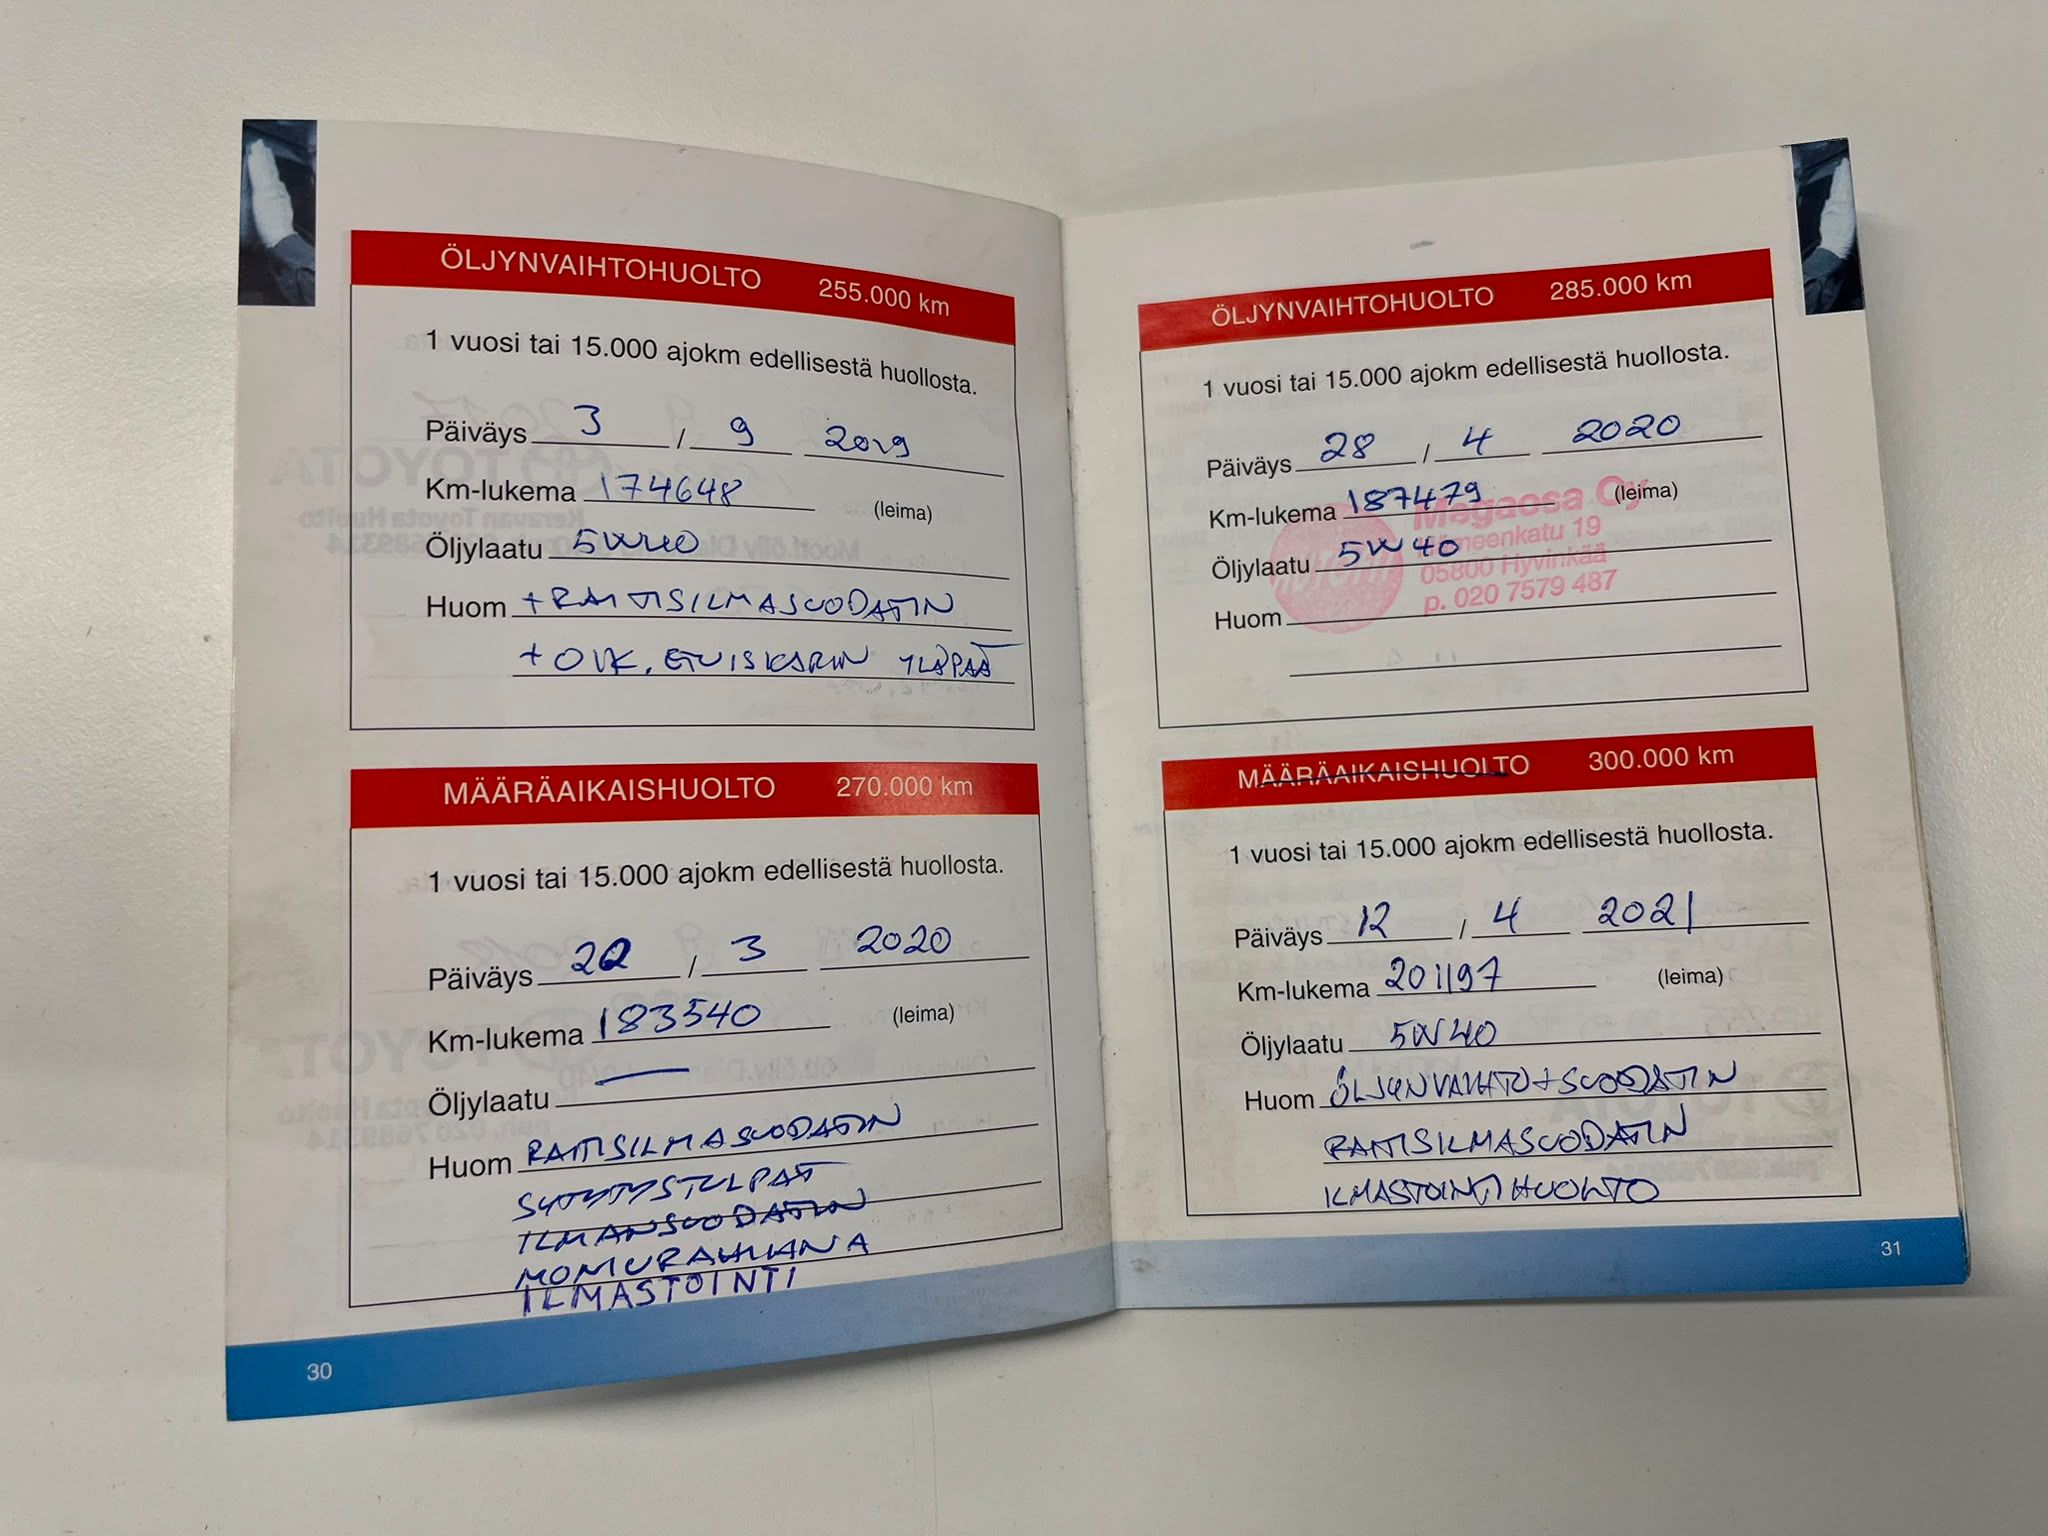 ÖLJYNVAIHTOHUOLTO 255.000 km
1 vuosi tai 15.000 ajokm edellisestä huollosta.
Päiväys 3 / 9 2019
Km-lukema 174648 (leima)
Öljylaatu 5W40
Huom + RAITISILMASUODATIN
+ OIK. ETUISKARIN YLÄPÄÄ
MÄÄRÄAIKAISHUOLTO 270.000 km
1 vuosi tai 15.000 ajokm edellisestä huollosta.
Päiväys 22 / 3 2020
Km-lukema 183540 (leima)
Öljylaatu —
Huom RAITISILMASUODATIN
SYTYTYSTULPAT
ILMANSUODATIN
MONIURAHIHNA
ILMASTOINTI
30
ÖLJYNVAIHTOHUOLTO 285.000 km
1 vuosi tai 15.000 ajokm edellisestä huollosta.
Päiväys 28 / 4 2020
Km-lukema 187479 (leima)
Öljylaatu 5W40
Huom
Megaosa Oy
Hämeenkatu 19
05800 Hyvinkää
p. 020 7579 487
MÄÄRÄAIKAISHUOLTO 300.000 km
1 vuosi tai 15.000 ajokm edellisestä huollosta.
Päiväys 12 / 4 2021
Km-lukema 201197 (leima)
Öljylaatu 5W40
Huom ÖLJYNVAIHTO + SUODATIN
RAITISILMASUODATIN
ILMASTOINTIHUOLTO
31